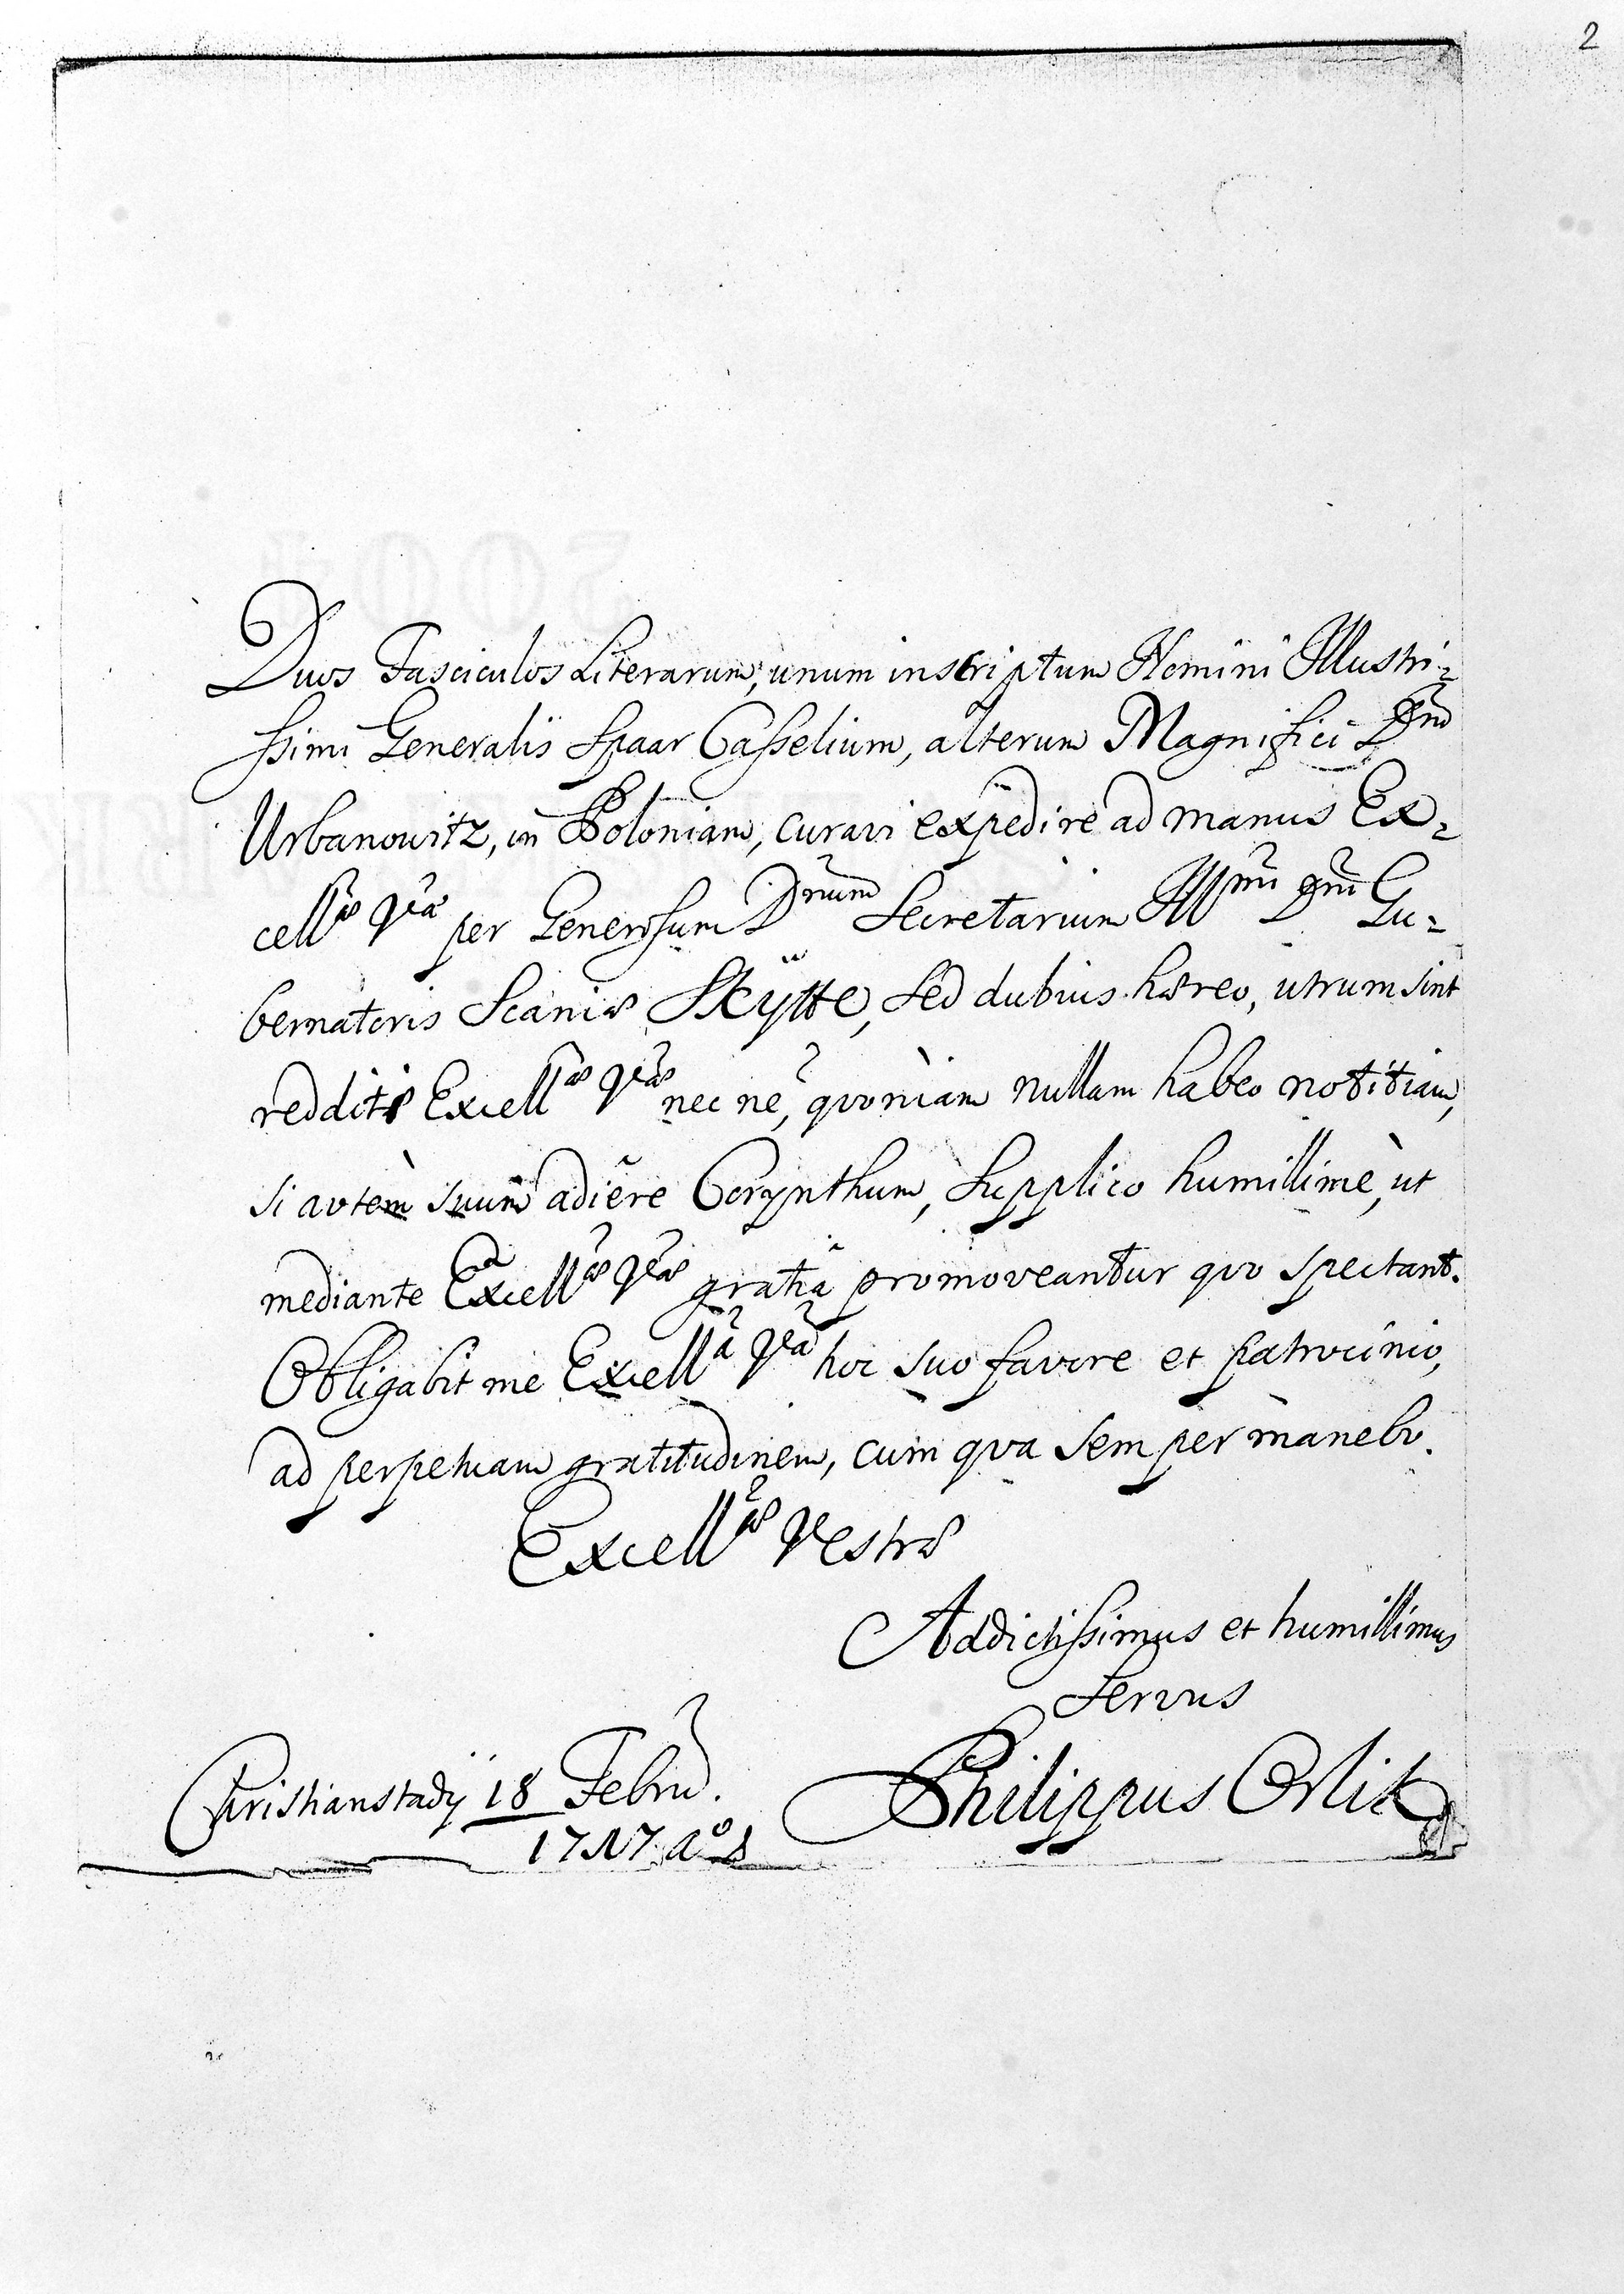 2
Duos Fasciculos Literarum, unum inscriptum Nomini Illustri=
ssimi Generalis Spaar Casselium, alterum Magnifici Dni
Urbanowitz, in Poloniam, curavi expedire ad manus Ex=
cellæ Vræ per Generosum Dnum Secretarium Illmi Dni Gu=
bernatoris Scaniæ Skÿtte, sed dubius hæreo, utrum sint
redditi Excellæ Vræ nec ne, quoniam nullam habeo notitiam,
si autem suum adiere Corynthum, supplico humillime, ut
mediante Excellæ Vræ gratiâ promoveantur quo spectant.
Obligabit me Excella Vra hoc suo favore et patrocinio,
ad perpetuam gratitudinem, cum qva semper manebo.
Excellæ Vestræ
Addictissimus et humillimus
Servus
Christianstadÿ 18 Febru.
1717 aº
Philippus Orlik